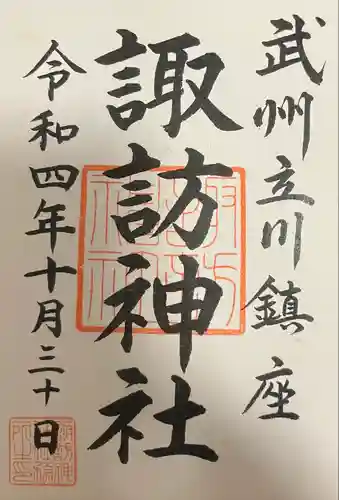 武州立川鎮座
諏訪神社
令和四年十月三十日